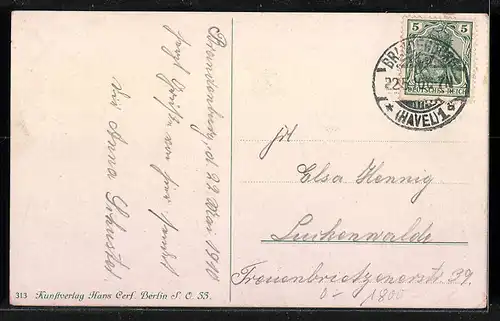 Brandenburg, d. 22 Mai 1910
send Grüße von hier sendet
dir Anna
5
DEUTSCHES REICH
BRANDENBURG
22.5.10
* (HAVEL) 1 g
Frl.
Elsa Hennig
Luckenwalde
Treuenbrietzenerstr. 39.
0- 1800
313 Kunstverlag Hans Cerf. Berlin S. O. 33.